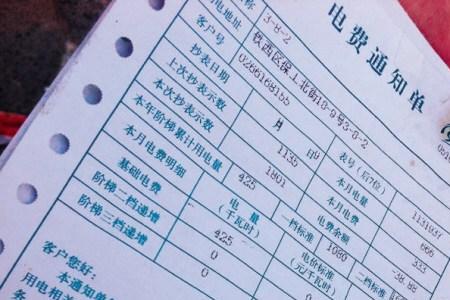 电费通知单
称 3-8-2
电地址 铁西区保工北街10-9号3-8-2
客户号 0266168155
抄表日期 月 日
上次抄表示数 1135 表号(后7位) 1131037
本次抄表示数 1801 本月电量 666
本年阶梯累计用电量 425 本月电费 333
本月电费明细 电费余额 -38.88
基础电费 电量(千瓦时) 一档标准 1080 二档标
阶梯二档递增 425 电价标准(元/千瓦时)
阶梯三档递增 0
0
客户您好:
本通知单
用电相关